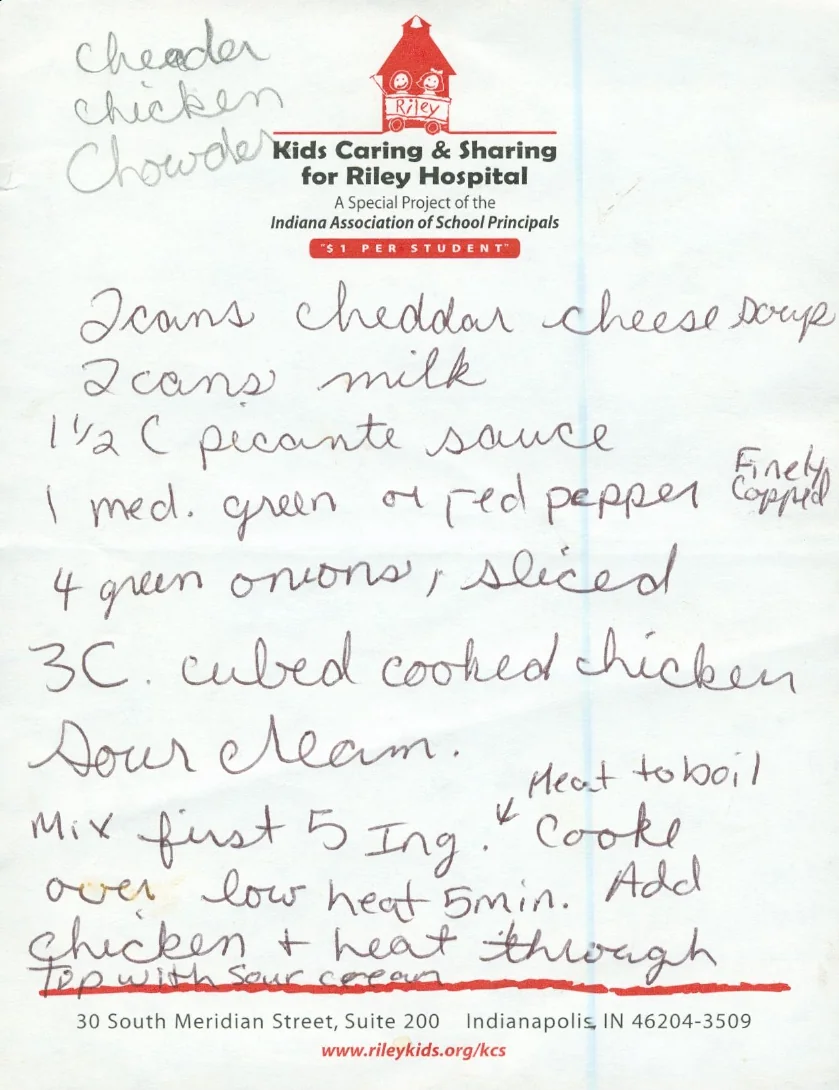 cheader
chicken
Chowder
Riley
Kids Caring & Sharing
for Riley Hospital
A Special Project of the
Indiana Association of School Principals
"$1 PER STUDENT"
2 cans cheddar cheese soup
2 cans milk
1 1/2 C picante sauce
1 med. green or red pepper Finely Copped
4 green onions, sliced
3C. cubed cooked chicken
Sour cream.
Heat to boil
Mix first 5 Ing. ↙ Cooke
over low heat 5min. Add
chicken + heat through
Top with Sour cream
30 South Meridian Street, Suite 200 Indianapolis, IN 46204-3509
www.rileykids.org/kcs